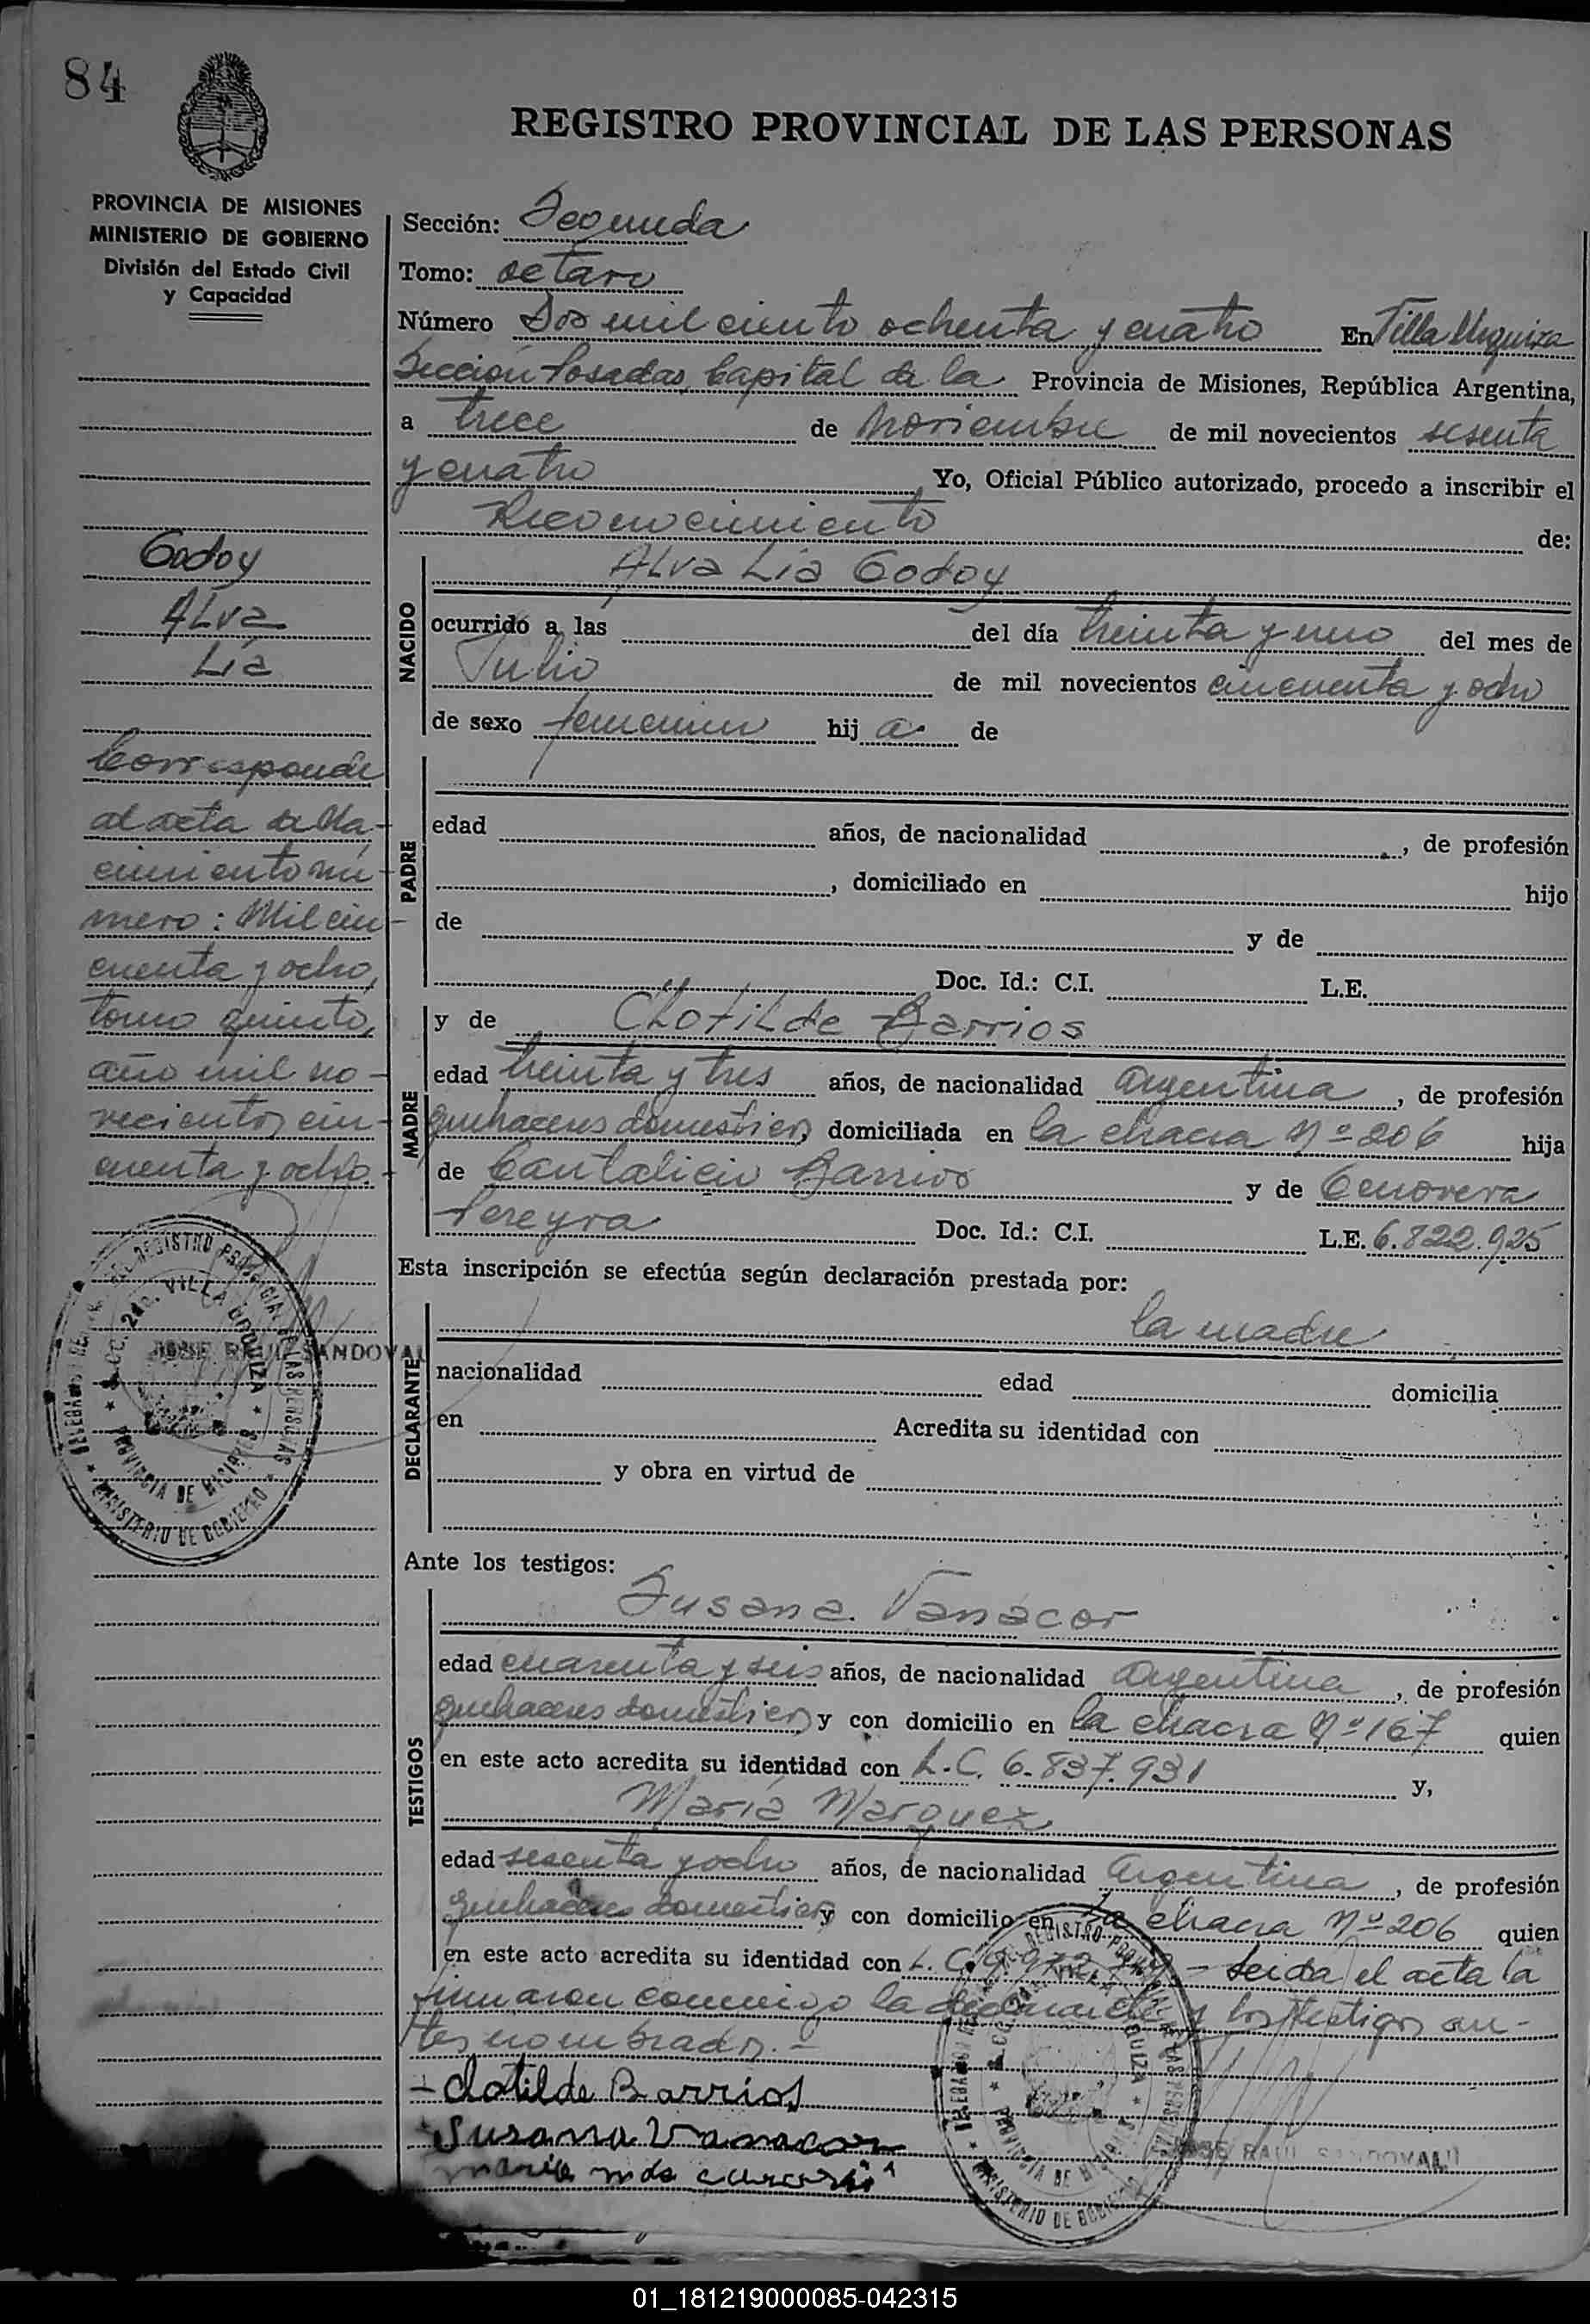 84
REGISTRO PROVINCIAL DE LAS PERSONAS
PROVINCIA DE MISIONES
MINISTERIO DE GOBIERNO
División del Estado Civil
y Capacidad
Sección: Segunda
Tomo: octavo
Número Dos mil ciento ochenta y cuatro En Villa Urquiza
Sección Posadas, Capital de la Provincia de Misiones, República Argentina,
a trece de Noviembre de mil novecientos sesenta
y cuatro Yo, Oficial Público autorizado, procedo a inscribir el
Reconocimiento de:
Godoy
Alva
Lía
Corresponde
al acta de Na-
cimiento nú-
mero: Mil cin-
cuenta y ocho,
tomo quinto,
año mil no-
vecientos cin-
cuenta y ocho.-
JOSE RAUL SANDOVAL
NACIDO
Alva Lía Godoy
ocurrido a las del día treinta y uno del mes de
Julio de mil novecientos cincuenta y ocho
de sexo femenino hij a. de
PADRE
edad años, de nacionalidad , de profesión
, domiciliado en hijo
de y de
Doc. Id.: C.I. L.E.
MADRE
y de Clotilde Barrios
edad treinta y tres años, de nacionalidad argentina , de profesión
quehaceres domésticos, domiciliada en la chacra Nº 206 hija
de Cantalicio Barrios y de Genovera
Pereyra Doc. Id.: C.I. L.E. 6.822.925
Esta inscripción se efectúa según declaración prestada por:
DECLARANTE
la madre
nacionalidad edad domicilia
en Acredita su identidad con
y obra en virtud de
Ante los testigos:
TESTIGOS
Susana Vanacor
edad cuarenta y seis años, de nacionalidad argentina , de profesión
quehaceres domésticos y con domicilio en la chacra Nº 167 quien
en este acto acredita su identidad con L.C. 6.837.931 y,
María Marquez
edad sesenta y ocho años, de nacionalidad argentina , de profesión
quehaceres domésticos y con domicilio en la chacra Nº 206 quien
en este acto acredita su identidad con L.C. - Leida el acta la
firmaron conmigo la declarante y los testigos an-
tes nombrados.-
- Clotilde Barrios
Susana Vanacor
maria
REGISTRO PROVINCIAL DE LAS PERSONAS
SECC. 2da. VILLA URQUIZA
PROVINCIA DE MISIONES
MINISTERIO DE GOBIERNO
JOSE RAUL SANDOVAL
01_181219000085-042315